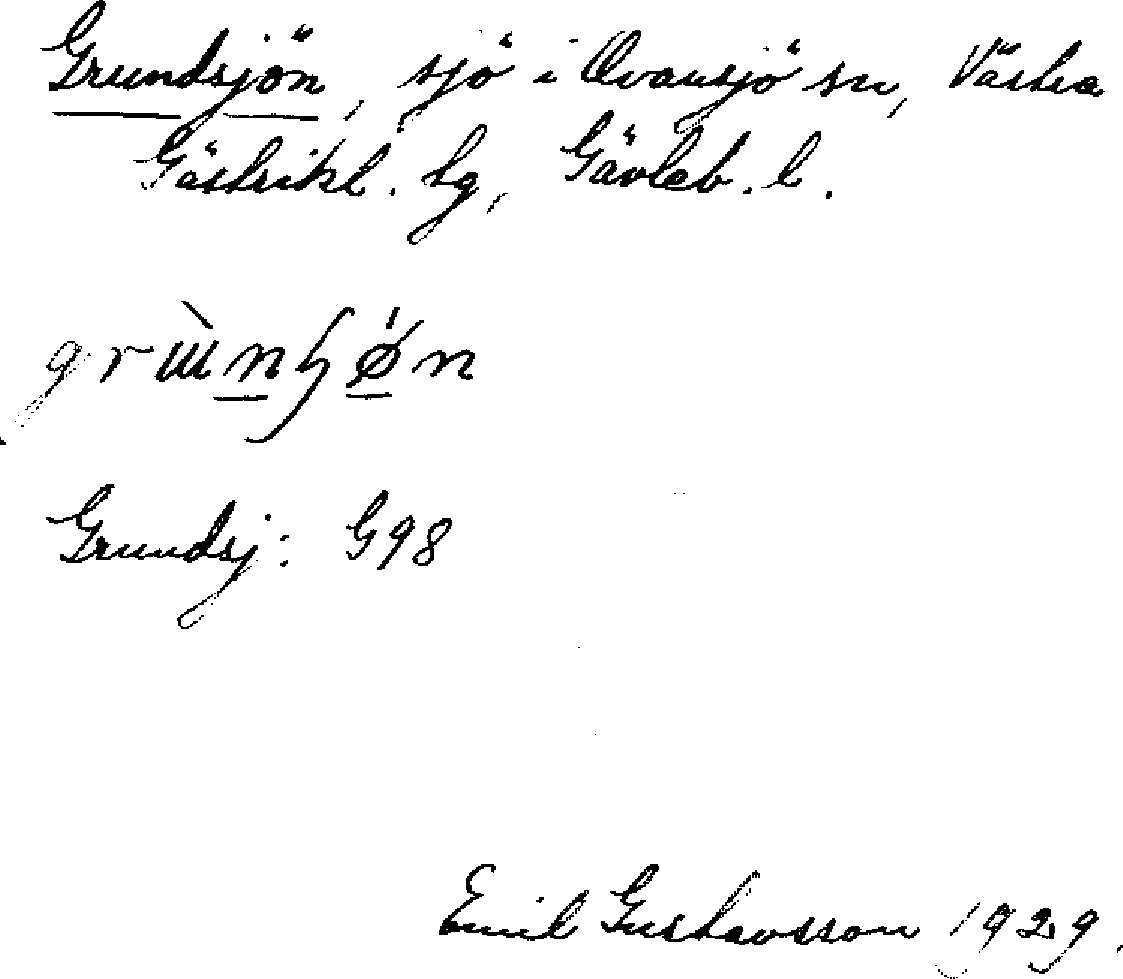 Grundsjön, sjö i Ovansjö sn, Västra
Gästrikl. tg, Gävleb. l.
Grundsj: G98
Emil Gustavsson 1929.